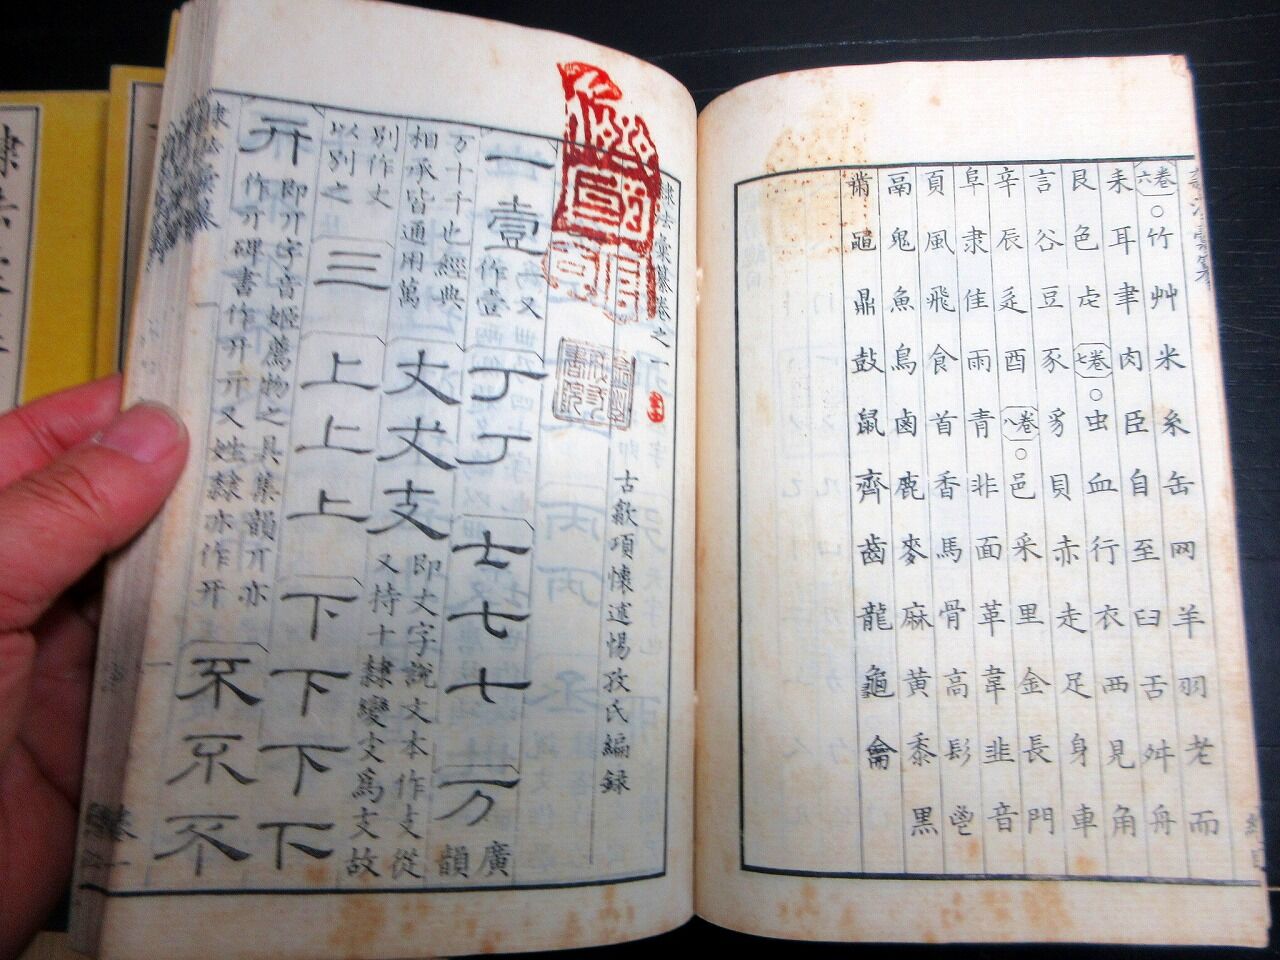 卷六○竹艸米糸缶网羊羽老而
耒耳聿肉臣自至臼舌舛舟
艮色虍卷七○虫血行衣西見角
言谷豆豕豸貝赤走足身車
辛辰辵酉卷八○邑釆里金長門
阜隶隹雨青非面革韋韭音
頁風飛食首香馬骨高髟鬯
鬲鬼魚鳥鹵鹿麥麻黃黍黑
黹黽鼎鼓鼠齊齒龍龜龠
隸法彙纂卷之一
古歙項懷述惕孜氏編錄
一壹
丁丁
七七七
万
廣韻
万十千也經典
相承皆通用萬
丈丈支
即丈字說文本作支從
又持十隸變丈爲支故
別作丈
以別之
三
上上上
下下下下
丌
即丌字音姬薦物之具集韻丌亦
作丌碑書作丌丌又姓隸亦作丌
不不不
隸法彙纂
卷一